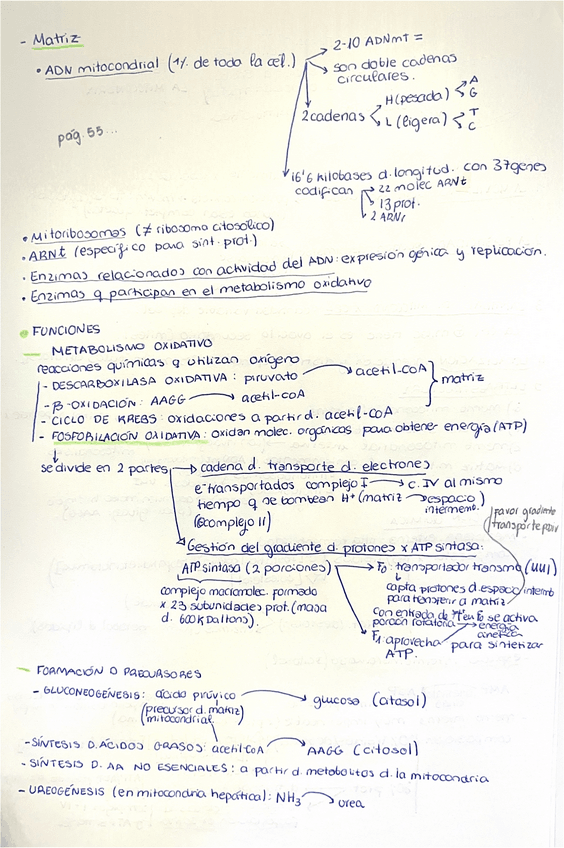 - Matriz
• ADN mitocondrial (1% de toda la cél.)
→ 2-10 ADNmt =
→ son doble cadenas
circulares.
2 cadenas
H (pesada) < A
G
L (ligera) < T
C
pág. 55...
16'6 kilobases d. longitud. con 37 genes
codifican → 22 molec ARNt
→ 13 prot.
→ 2 ARNr
• Mitoribosomas (≠ ribosoma citosólico)
• ARNt (específico para sint. prot.)
• Enzimas relacionados con actividad del ADN: expresión génica y replicación.
• Enzimas q participan en el metabolismo oxidativo
• FUNCIONES
— METABOLISMO OXIDATIVO
reacciones químicas q utilizan oxígeno
- DESCARBOXILASA OXIDATIVA: piruvato → acetil-CoA
- β-OXIDACIÓN: AAGG → acetil-CoA
} matriz
- CICLO DE KREBS: oxidaciones a partir d. acetil-CoA
- FOSFORILACIÓN OXIDATIVA: oxidan molec. orgánicas para obtener energía (ATP)
se divide en 2 partes → cadena d. transporte d. electrones
e⁻ transportados complejo I → c. IV al mismo
tiempo q se bombean H⁺ (matriz → espacio)
intermemb.
complejo II)
favor gradiente
transporte
→ Gestión del gradiente d. protones x ATP sintasa:
ATP sintasa (2 porciones)
complejo macromolec. formado
x 23 subunidades prot. (masa
d. 600 K daltons).
F₀: transportador transmb
capta protones d. espacio intermb
para transferir a matriz
con entrada de H⁺ en F₀ se activa
porción rotatoria → energía
cinética
F₁: aprovecha para sintetizar
ATP.
— FORMACIÓN D PRECURSORES
- GLUCONEOGÉNESIS: ácido pirúvico → glucosa (citosol)
(precursor d. matriz)
mitocondrial
- SÍNTESIS D. ÁCIDOS GRASOS: acetil-CoA → AAGG (citosol)
- SÍNTESIS D. AA NO ESENCIALES: a partir d. metabolitos d. la mitocondria
- UREOGÉNESIS (en mitocondria hepática): NH₃ → urea